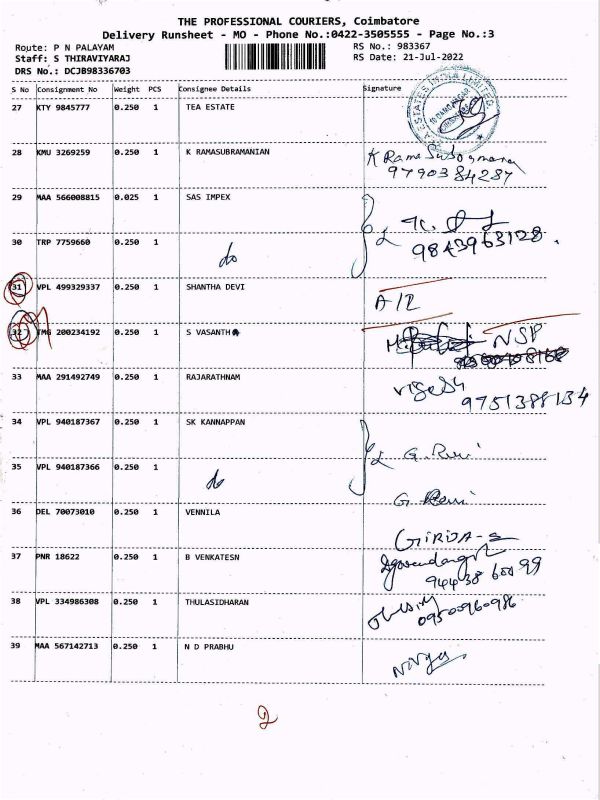 THE PROFESSIONAL COURIERS, Coimbatore
Delivery Runsheet - MO - Phone No.:0422-3505555 - Page No.:3
Route: P N PALAYAM
Staff: S THIRAVIYARAJ
DRS No.: DCJB98336703
RS No.: 983367
RS Date: 21-Jul-2022
S No Consignment No Weight PCS Consignee Details Signature
27 KTY 9845777 0.250 1 TEA ESTATE
28 KMU 3269259 0.250 1 K RAMASUBRAMANIAN K Rama Subramanian
9790384287
29 MAA 566008815 0.025 1 SAS IMPEX
30 TRP 7759660 0.250 1 do 9843963128
31 VPL 499329337 0.250 1 SHANTHA DEVI A/R
32 TMG 200234192 0.250 1 S VASANTHA NSP
33 MAA 291492749 0.250 1 RAJARATHNAM
9751388134
34 VPL 940187367 0.250 1 SK KANNAPPAN
35 VPL 940187366 0.250 1 do
36 DEL 70073010 0.250 1 VENNILA GIRIJA-S
37 PNR 18622 0.250 1 B VENKATESN
94438 60099
38 VPL 334986308 0.250 1 THULASIDHARAN
09500960986
39 MAA 567142713 0.250 1 N D PRABHU
2